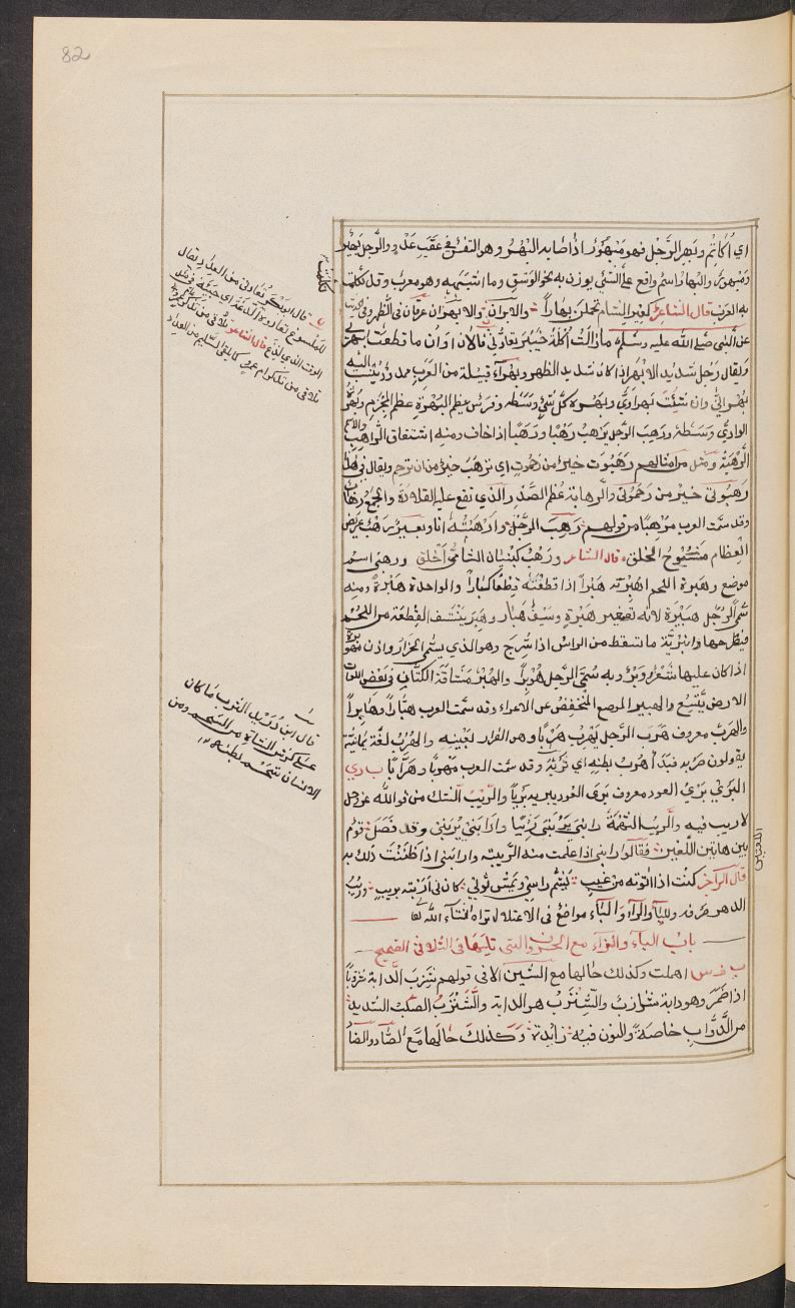 82
اي أكاتم وبهر الرجل فهو مبهور اذا اصابه البهر وهو النفس في عقب عدو والرجل بهير
ومبهور والبهار اسم واقع على الشئ يوزن به نحو الوسق وما اشبهه وهو معرب وقد تكلمت
به العرب قال الشاعر كعير الشام تحملن بهارا والابهران عرقان في الظهر وفي حديث
عن النبي صلى الله عليه وسلم ما زالت أكلة خيبر تعادني فالآن اوان ما قطعت ابهري
ويقال رجل شديد الابهر اذا كان شديد الظهر وبهراء قبيلة من العرب ممدود ينسب اليه
بهراني وان شئت بهراوي وبهرة كل شئ وسطه وفرس عظيم البهرة عظيم المحزم وبهرة
الوادي وسطه ورهب الرجل يرهب رهبا ورهبا اذا خاف ومنه اشتقاق الراهب والاسم
الرهبة ومثل من امثالهم رهبوت خير من رحموت اي ترهب خير من ان ترحم ويقال في هذا
رهبوتى خير من رحموتى والرهابة عظم الصدر الذي تقع عليه القلادة والجمع رهاب
وقد سمت العرب مرهبا من قولهم رهب الرجل وارهبته انا وبعير رهب عريض
العظام مشبوح الخلق قال الشاعر ورهب كبنيان الشامي أخلق ورهبى اسم
موضع وهبرة اللحم اهبره هبرا اذا قطعته قطعا كبارا والواحدة هبرة ومنه
سمي الرجل هبيرة لانه تصغير هبرة وسيف هبار وهبر ينتسف القطعة من اللحم
فيطرحها وابرية ما سقط من الراس اذا سرح وهو الذي يسمى الحزاز واذن مهوبرة
اذا كان عليها شعر ووبر وبه سمي الرجل هوبرا والهبر مشاقة الكتان في بعض اللغات
الارض يتسع والهبير الموضع المنخفض عن الاعراء وقد سمت العرب هبارا وهابرا
والهرب معروف هرب الرجل يهرب هربا وهو الفرار لبعينه والهرب لغة يمانية
يقولون هربه فبدا هرب بطنه اي ثربه وقد سمت العرب مهربا وهرابا ب ر ي
البري بري العود معروف برى العود يبريه بريا والريب الشك من قوله عز وجل
لا ريب فيه والريب التهمة رابني يريبني ريبا وارابني يريبني وقد فصل قوم
بين هاتين اللغتين فقالوا رابني اذا علمت منه الريبة وارابني اذا ظننت ذلك به
قال الراجز كنت اذا اتوته من غيب يشم راسي ويمس ثوبي كأني أربته بريب وريب
الدهر صرفه وللياء والراء والباء مواضع في الاعتلال تراها ان شاء الله تعالى
باب الباء والزاء مع الحروف التي تليها في الثلاثي الصحيح
ب ز س اهملت وكذلك حالها مع الشين الا في قولهم شزب الدابة شزوبا
اذا ضمر وهو دابة شازب والشنزب هو الدابة والشنزب الصلب الشديد
من الدواب خاصة والنون فيه زائدة وكذلك حالها مع الصاد والضاد
تكلمت
قال ابو بكر تعادني من العداد يقال
للملسوع تعاوده اللدغة اي حمته في مثل
الوقت الذي لدغ قال الشاعر
تلاقي من تذكر ام عمرو كما يلقى السليم من العداد
قال ابن دريد الثرب ما كان
على كرش الشاة من الشحم ومن
الانسان شحم بطنه
اللغتين